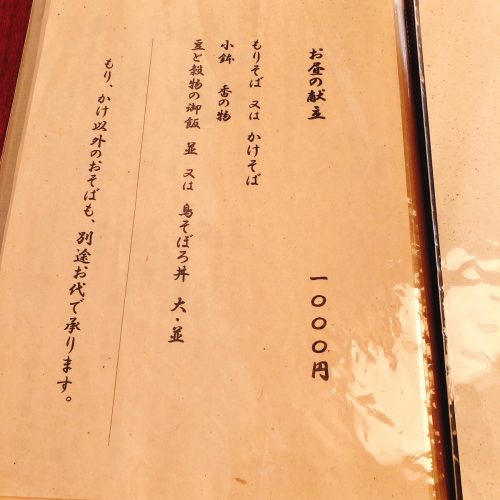 お昼の献立 一〇〇〇円
もりそば 又は かけそば
小鉢 香の物
豆と穀物の御飯 並 又は 鳥そぼろ丼 大・並
もり、かけ以外のおそばも、別途お代で承ります。